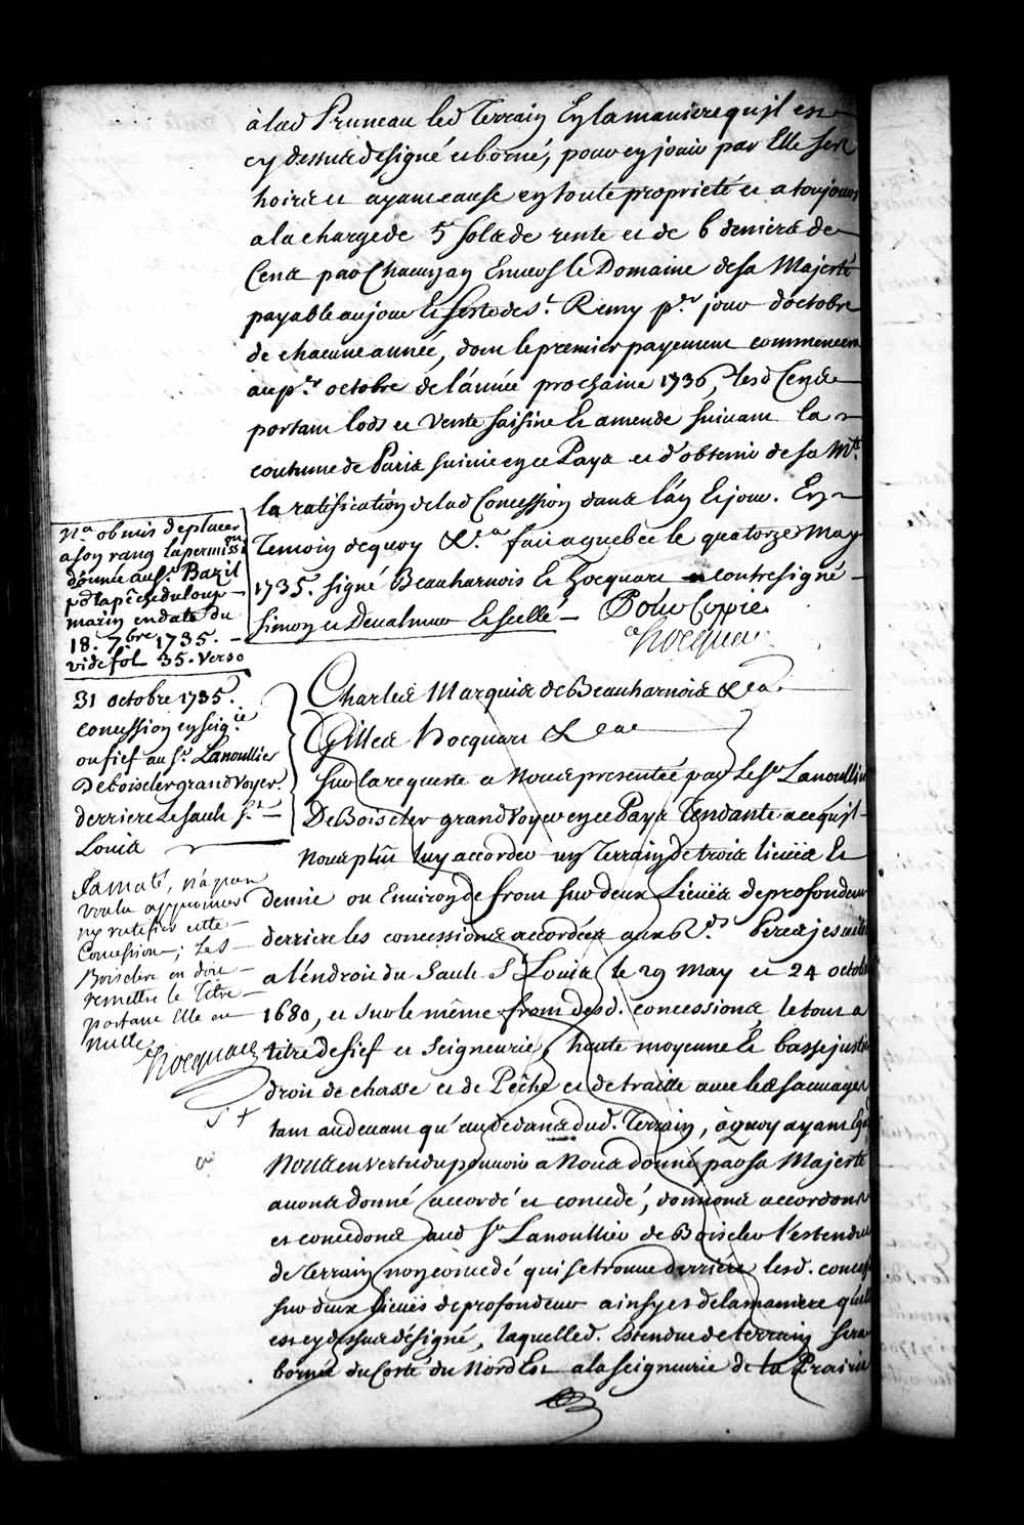 à lad Pruneau led Terrain En la maniere qu'jl est
cy dessus designé et borné, pour en jouir par Elle ses
hoirs et ayant cause en toute proprieté et a toujours
a la charge de 5 sols de rente et de 6 deniers de
Cens par Chacun an Envers le Domaine de sa Majesté
payable au jour et feste de St. Remy pr. jour d'octobre
de chacune année, dont le premier payement commencera
au pr. octobre de l'année prochaine 1736, lesd Cens
portant lods et Vente saisine et amende suivant la
coutume de Paris suivie en ce Pays et d'obtenir de sa Mté.
la ratification de lad Concession dans l'an et jour. En
Temoin de quoy &a. fait a quebec le quatorze May
1735. signé Beauharnois et hocquart et contresigné
simon et Devalmur et scellé – Pour Copie
hocquart
Na. obmis de placer
a son rang la permission
donnée au Sr. Bazil
pr la pêche du loup
marin en date du
18. 7bre 1735.
vide fol 35. verso
31 octobre 1735.
concession en seigrie
ou fief au Sr. Lanoullier
De boiscler grand Voyer
derriere Le sault St.
Louis
Sa maté, n'a pas
voulu approuver
ny ratifier cette
Concession; Le S
Boisclere en doit
remettre le titre
portant Elle est
nulle
hocquart
Charles Marquis de Beauharnois &ca.
Gilles hocquart &ca
Sur la requeste a Nous presentée par Le Sr Lanoullier
De Boiscler grand Voyer en ce Pays Tendante a ce qu'jl
Nous plût luy accorder un Terrain de trois lieües et
demie ou Environ de front sur deux Lieües de profondeur
derriere les concessions accordées aux Rds. Peres jesuites
a l'endroit du Sault St Louis le 29 May et 24 octobre
1680, et sur le même front desd. concessions, le tout a
titre de fief et Seigneurie, haute moyenne et basse justice
droit de chasse et de Pêche et de traitte avec les sauvages
tant au devant qu'au dedans dud. Terrain, à quoy ayant Egard
Nous en vertu du pouvoir a Nous donné par sa Majesté
avons donné accordé et concedé, donnons accordons
et concedons aud Sr Lanoullier de Boiscler l'estendue
de terrain non concedé qui se trouve derriére lesd. concess
sur deux lieües de profondeur ainsy et de la maniere qu'elle
est cy dessus désigné, laquelle d. Estendue de terrain sera
bornée du Costé du Nord Est a la seigneurie de la Prairie